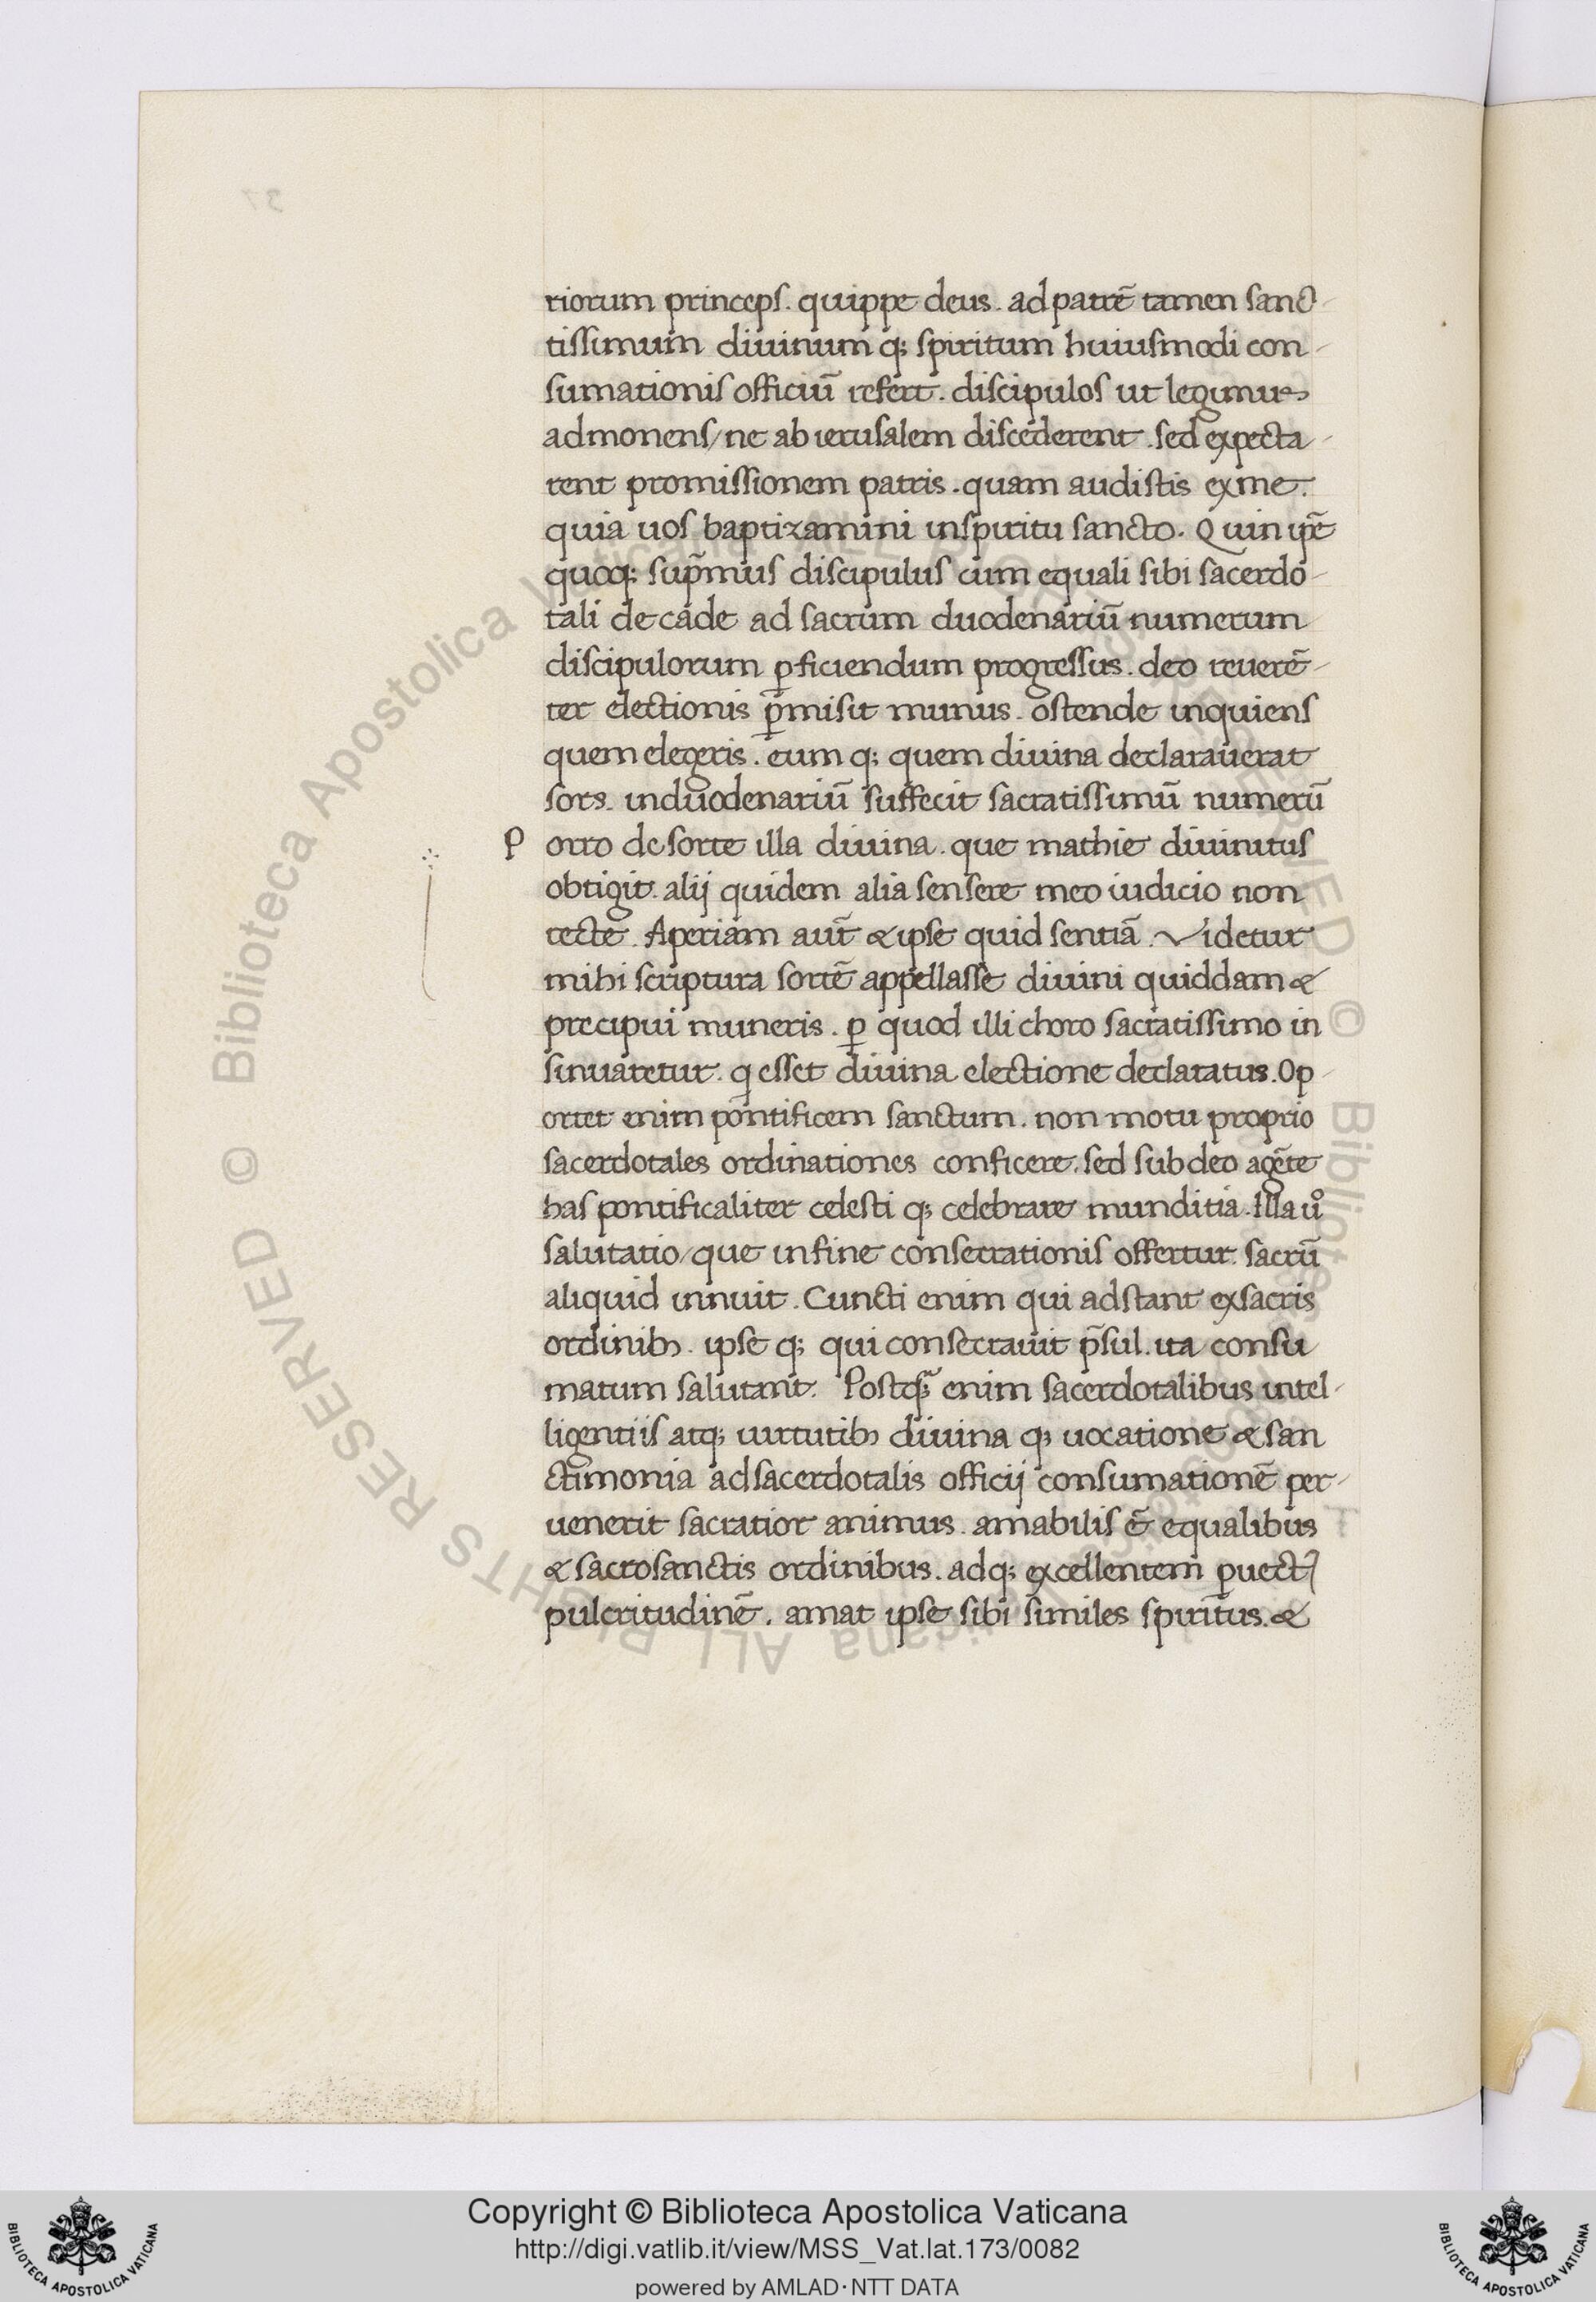 riorum princeps. quippe deus. ad patrē tamen sanc-
tissimum diuinum q; spiritum huiusmodi con-
sumationis officiū refert. discipulos ut legimus
admonens/ ne ab ierusalem discederent. sed expecta-
rent promissionem patris. quam audistis ex me.
quia uos baptizamini in spiritu sancto. Quin ip̄e
quoq; sup̄mus discipulus cum equali sibi sacerdo-
tali decade ad sacrum duodenariū numerum
discipulorum ꝑficiendum progressus. deo reuerē-
ter electionis p̄misit munus. ostende inquiens
quem elegeris. eum q; quem diuina declarauerat
sors. in duodenariū suffecit sacratissimū numerū
P orro de sorte illa diuina. que mathie diuinitus
obtigit. alij quidem alia sensere meo iudicio non
recte. Aperiam aut̄ & ipse quid sentiā. Videtur
mihi scriptura sortē appellasse diuini quiddam &
precipui muneris. ꝑ quod illi choro sacratissimo in
sinuaretur. q esset diuina electione declaratus. Op-
ortet enim pontificem sanctum. non motu proprio
sacerdotales ordinationes conficere. sed sub deo agēte
has pontificaliter celesti q; celebrare munditia. Illa uͦ
salutatio/ que in fine consecrationis offertur. sacrū
aliquid innuit. Cuncti enim qui adstant ex sacris
ordinibꝫ. ipse q; qui consecrauit p̄sul. ita consu
matum salutant. Postq̄ enim sacerdotalibus intel-
ligentiis atq; uirtutibꝫ diuina q; uocatione & san
ctimonia ad sacerdotalis officij consumationē per-
uenerit sacratior animus. amabilis ē equalibus
& sacrosanctis ordinibus. ad q; excellentem ꝑuectꝰ
pulcritudinē. amat ipse sibi similes spirit̄us. &
Copyright © Biblioteca Apostolica Vaticana
http://digi.vatlib.it/view/MSS_Vat.lat.173/0082
powered by AMLAD·NTT DATA
BIBLIOTECA APOSTOLICA VATICANA
BIBLIOTECA APOSTOLICA VATICANA